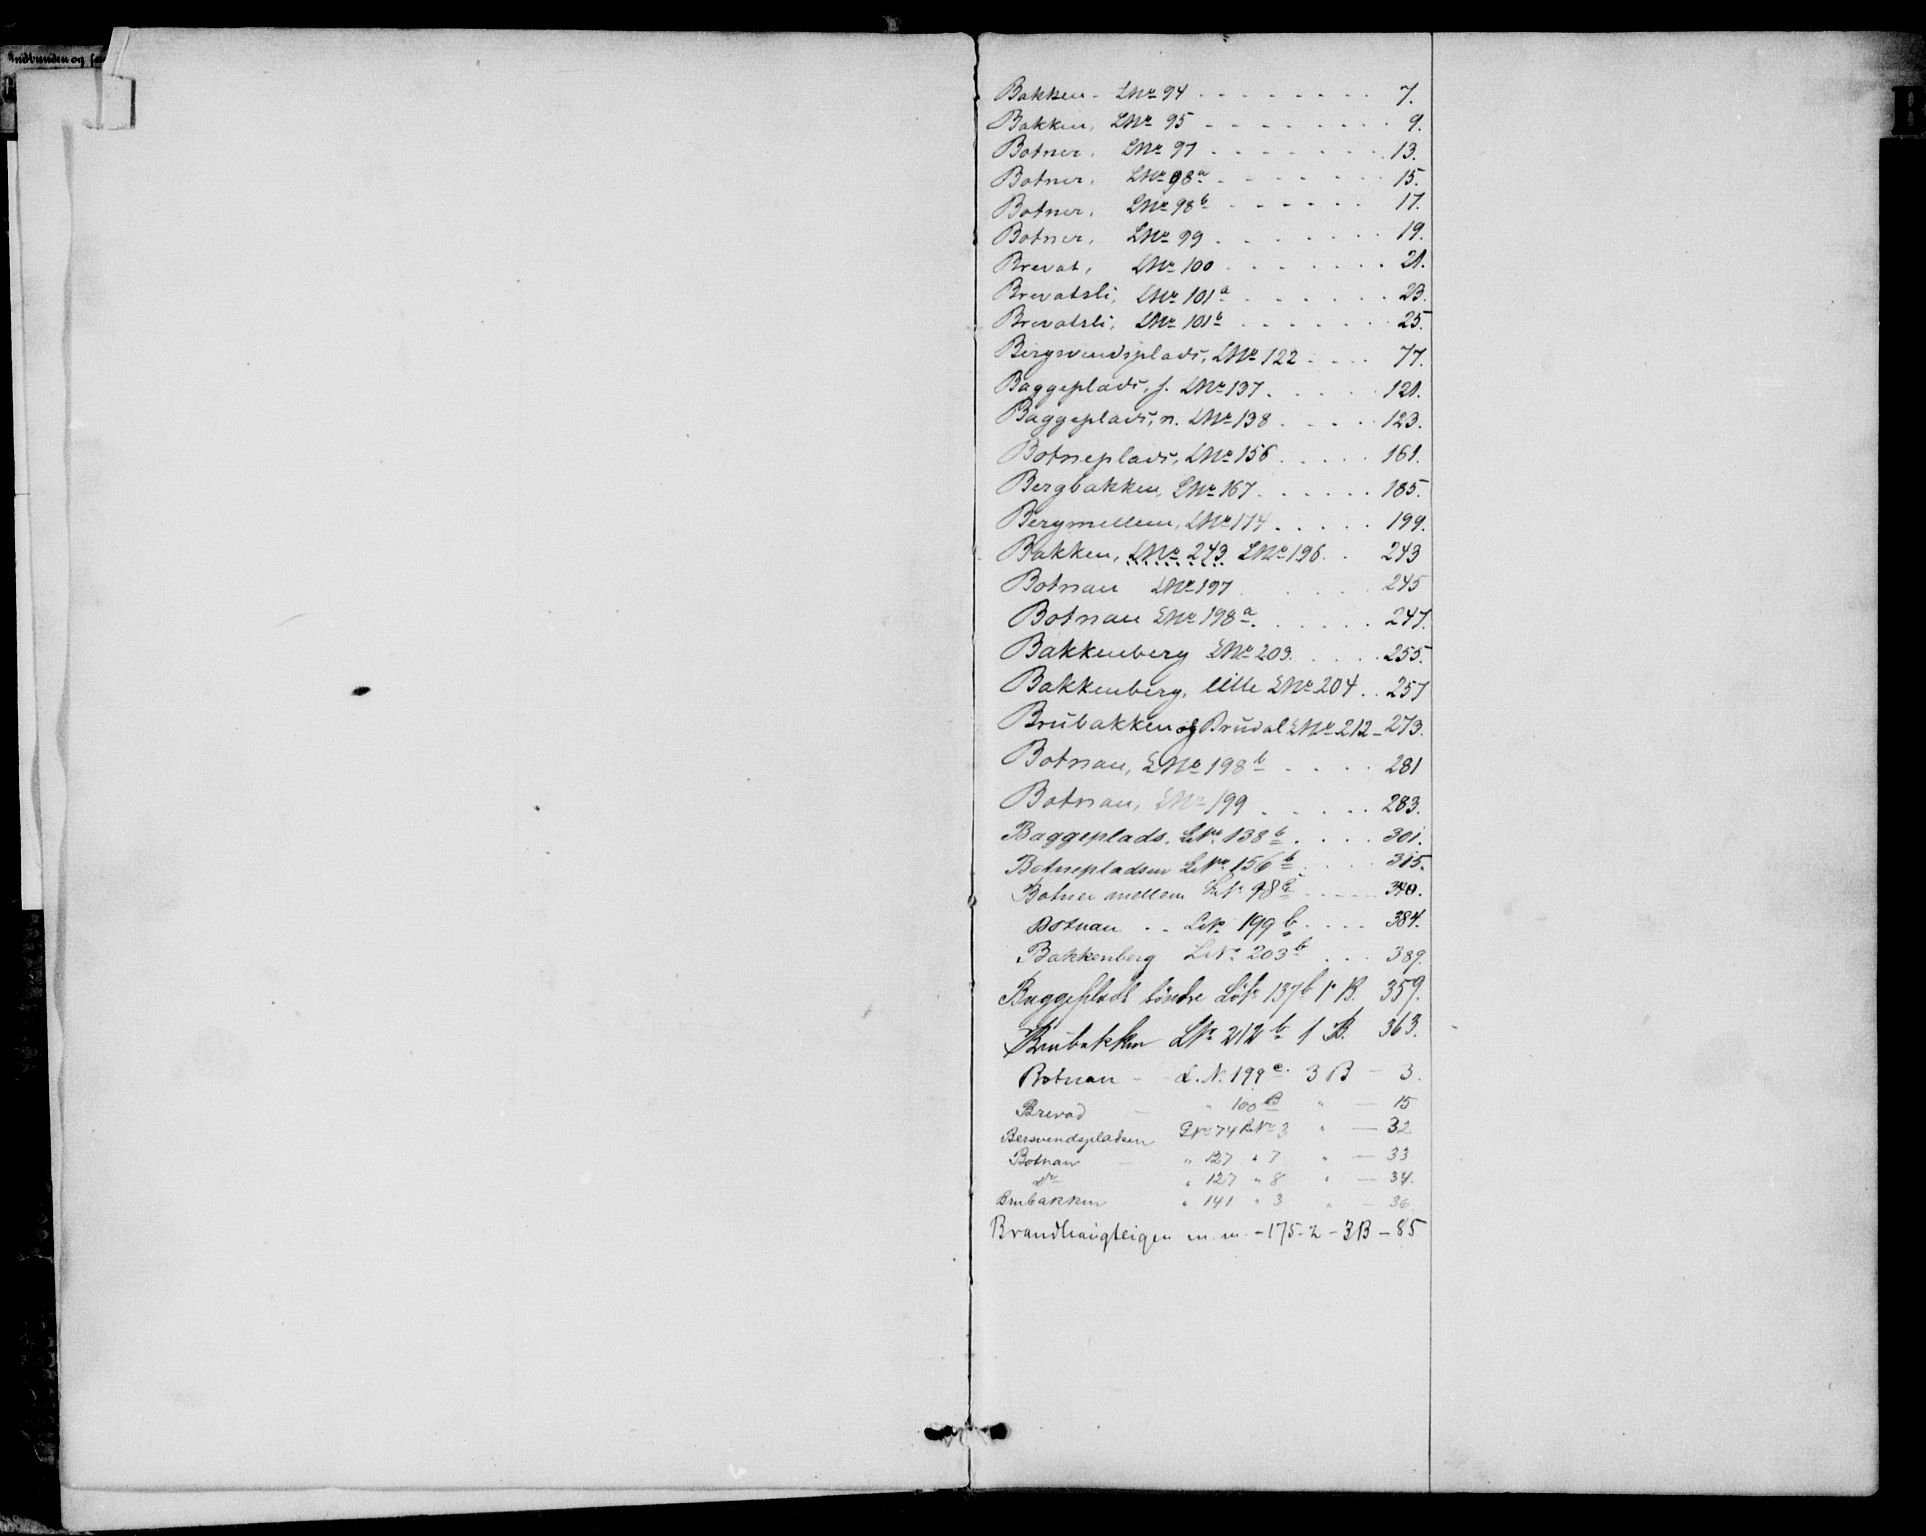 Indbunden og
B
Bakken - LNr 94 - - - - - - - - 7.
Bakken, LNr 95 - - - - - - - - 9.
Botner, LNr 97 - - - - - - - 13.
Botner, LNr 98a - - - - - - 15.
Botner, LNr 98b - - - - - - 17.
Botner, LNr 99 - - - - - - - 19.
Brevat, LNr 100 - - - - - - 21.
Brevatsli, LNr 101a - - - - - - 23.
Brevatsli, LNr 101b - - - - - - 25.
Bergsvendsplads, LNr 122 - - - - 77.
Baggeplads, s. LNr 137 . . . . . 121.
Baggeplads, n. LNr 138 . . . . . 123.
Botneplads, LNr 156 . . . . . 161.
Bergbakken, LNr 167 . . . . . . 185.
Bergmellem, LNr 174 . . . . . 199.
Bakken, LNr 243 LNr 196 . . 243
Botnau LNr 197 . . . . . 245
Botnau LNr 198a . . . . . . 247.
Bakkenberg LNr 203 . . . . 255.
Bakkenberg, lille LNr 204 . . 257
Brubakken og Brudal LNr 212 - 273.
Botnau, LNr 198b - . . . 281
Botnau, LNr 199 . . . . . 283.
Baggeplads. LNr. 138b . . . . 301.
Botnepladsen LNr. 156b . . . . 315.
Botner mellem LNr 98c . . . . 340.
Botnau . . LNr. 199 b . . . . 384.
Bakkenberg LNr. 203b . . . 389.
Baggeplads söndre LöNr 137b 1 B. 359.
Brubakken LNr 212b 1 B. 363.
Botnau - L. N. 199c. 3 B - 3.
Brevad — " 100B " — 15
Bersvendspladsen GNr 74 BNr 3 " — 32
Botnau — " 127 " 7 " — 33
do " 127 " 8 " — 34.
Brubakken " 141 " 3 " — 36.
Brandhaugteigen m. m. - 175 - 2 - 3B - 85